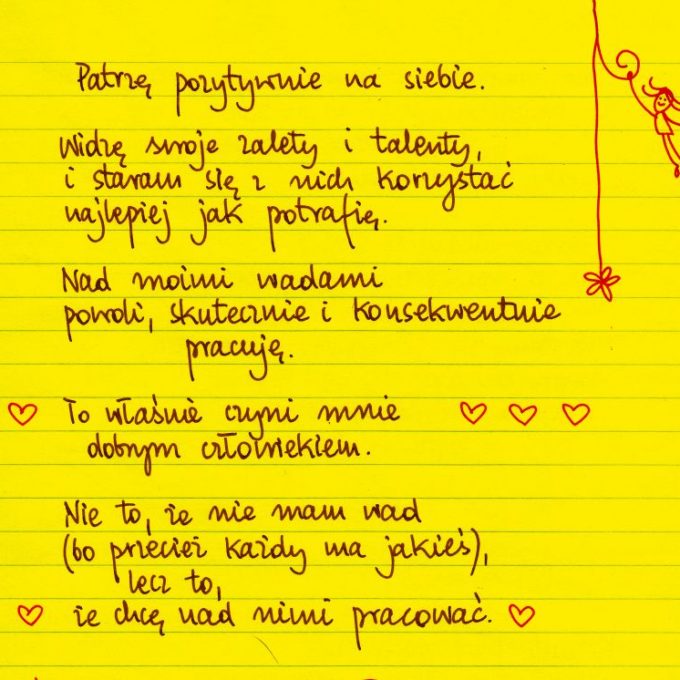 Patrzę pozytywnie na siebie.
Widzę swoje zalety i talenty,
i staram się z nich korzystać
najlepiej jak potrafię.
Nad moimi wadami
powoli, skutecznie i konsekwentnie
pracuję.
To właśnie czyni mnie
dobrym człowiekiem.
Nie to, że nie mam wad
(bo przecież każdy ma jakieś),
lecz to,
że chcę nad nimi pracować.